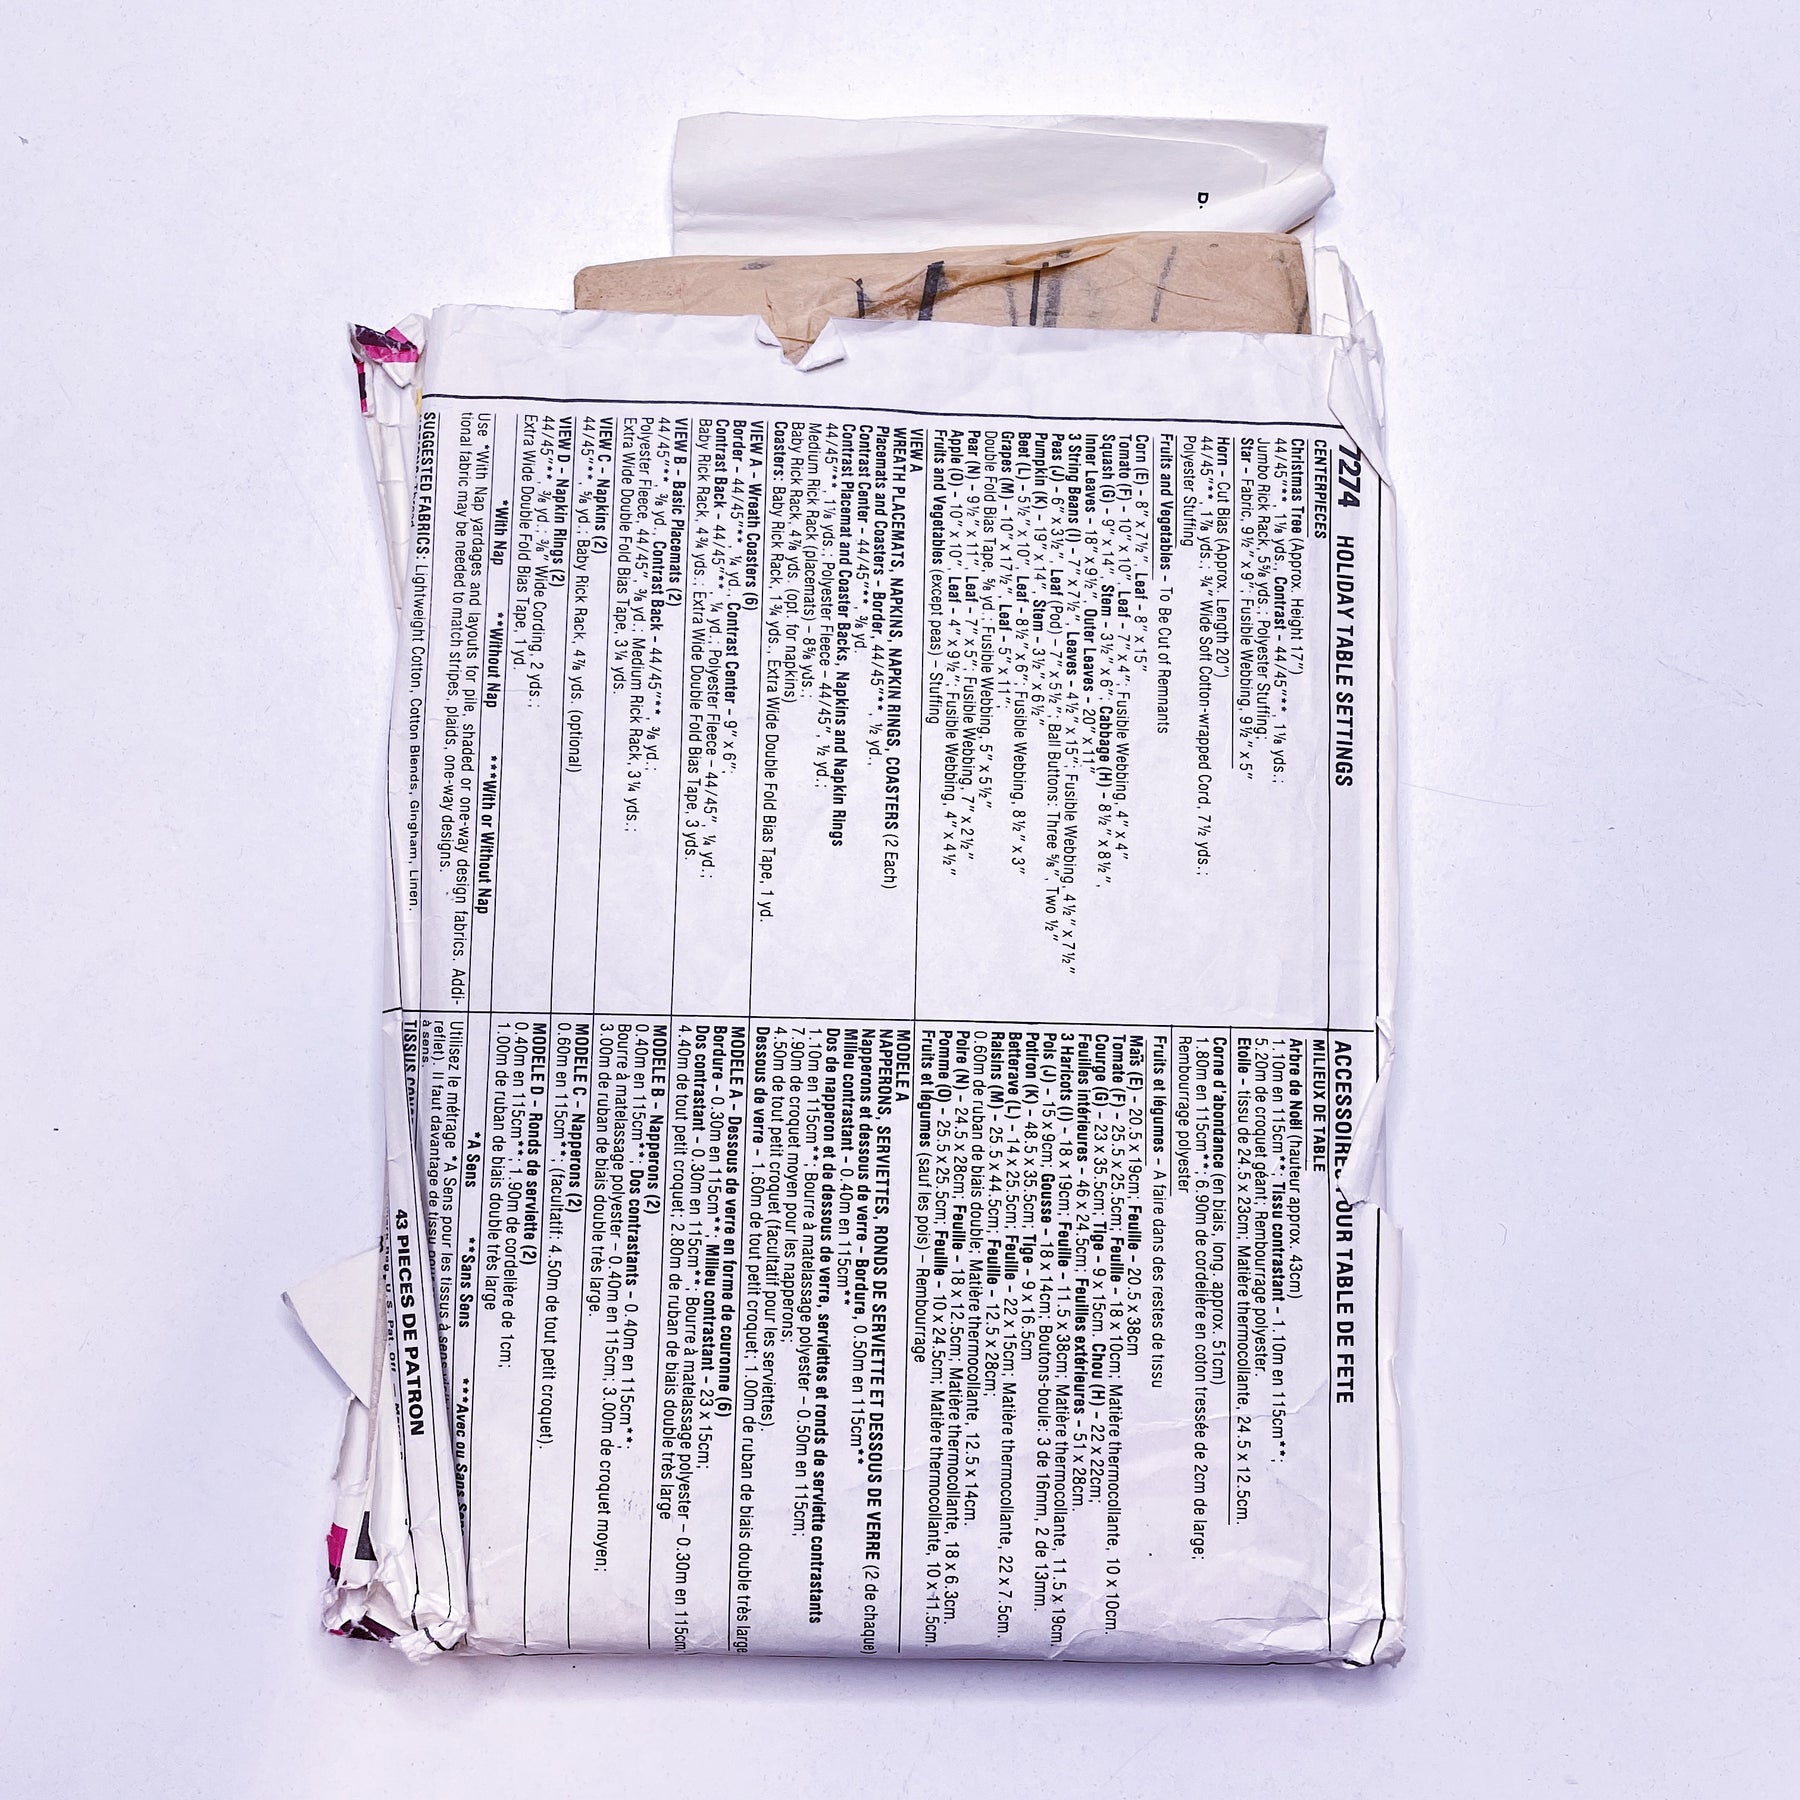 D.
7274 HOLIDAY TABLE SETTINGS
CENTERPIECES
Christmas Tree (Approx. Height 17")
44/45"**, 1⅛ yds., Contrast – 44/45"**, 1⅛ yds.;
Jumbo Rick Rack, 5⅝ yds.; Polyester Stuffing;
Star – Fabric, 9½" x 9"; Fusible Webbing, 9½" x 5"
Horn – Cut Bias (Approx. Length 20")
44/45"**, 1⅞ yds.; ¾" Wide Soft Cotton-wrapped Cord, 7½ yds.;
Polyester Stuffing
Fruits and Vegetables – To Be Cut of Remnants
Corn (E) – 8" x 7½", Leaf – 8" x 15"
Tomato (F) – 10" x 10", Leaf – 7" x 4"; Fusible Webbing, 4" x 4"
Squash (G) – 9" x 14", Stem – 3½" x 6"; Cabbage (H) – 8½" x 8½",
Inner Leaves – 18" x 9½", Outer Leaves – 20" x 11"
3 String Beans (I) – 7" x 7½", Leaves – 4½" x 15"; Fusible Webbing, 4½" x 7½"
Peas (J) – 6" x 3½", Leaf (Pod) – 7" x 5½"; Ball Buttons: Three ⅝", Two ½"
Pumpkin (K) – 19" x 14", Stem – 3½" x 6½"
Beet (L) – 5½" x 10", Leaf – 8½" x 6"; Fusible Webbing, 8½" x 3"
Grapes (M) – 10" x 17½", Leaf – 5" x 11";
Double Fold Bias Tape, ⅝ yd.; Fusible Webbing, 5" x 5½"
Pear (N) – 9½" x 11", Leaf – 7" x 5"; Fusible Webbing, 7" x 2½"
Apple (O) – 10" x 10", Leaf – 4" x 9½"; Fusible Webbing, 4" x 4½"
Fruits and Vegetables (except peas) – Stuffing
VIEW A
WREATH PLACEMATS, NAPKINS, NAPKIN RINGS, COASTERS (2 Each)
Placemats and Coasters – Border, 44/45"**, ½ yd.;
Contrast Center – 44/45"**, ⅜ yd.
Contrast Placemat and Coaster Backs, Napkins and Napkin Rings
44/45"**, 1⅛ yds.; Polyester Fleece – 44/45", ½ yd.;
Medium Rick Rack (placemats) – 8⅝ yds.;
Baby Rick Rack, 4⅞ yds. (opt. for napkins)
Coasters: Baby Rick Rack, 1¾ yds., Extra Wide Double Fold Bias Tape, 1 yd.
VIEW A – Wreath Coasters (6)
Border – 44/45"**, ¼ yd., Contrast Center – 9" x 6";
Contrast Back – 44/45"**, ¼ yd.; Polyester Fleece – 44/45", ¼ yd.;
Baby Rick Rack, 4¾ yds.; Extra Wide Double Fold Bias Tape, 3 yds.
VIEW B – Basic Placemats (2)
44/45"**, ⅜ yd., Contrast Back – 44/45"**, ⅜ yd.;
Polyester Fleece, 44/45", ⅜ yd.; Medium Rick Rack, 3¼ yds.;
Extra Wide Double Fold Bias Tape, 3¼ yds.
VIEW C – Napkins (2)
44/45"**, ⅝ yd.; Baby Rick Rack, 4⅞ yds. (optional)
VIEW D – Napkin Rings (2)
44/45"**, ⅜ yd., ⅜" Wide Cording, 2 yds.;
Extra Wide Double Fold Bias Tape, 1 yd.
*With Nap **Without Nap ***With or Without Nap
Use *With Nap yardages and layouts for pile, shaded or one-way design fabrics. Addi-
tional fabric may be needed to match stripes, plaids, one-way designs.
SUGGESTED FABRICS: Lightweight Cotton, Cotton Blends, Gingham, Linen.
ACCESSOIRES POUR TABLE DE FETE
MILIEUX DE TABLE
Arbre de Noël (hauteur approx. 43cm)
1.10m en 115cm**; Tissu contrastant – 1.10m en 115cm**;
5.20m de croquet géant; Rembourrage polyester.
Etoile – tissu de 24.5 x 23cm; Matière thermocollante, 24.5 x 12.5cm.
Corne d'abondance (en biais, long. approx. 51cm)
1.80m en 115cm**; 6.90m de cordelière en coton tressée de 2cm de large;
Rembourrage polyester
Fruits et légumes – A faire dans des restes de tissu
Maïs (E) – 20.5 x 19cm; Feuille – 20.5 x 38cm
Tomate (F) – 25.5 x 25.5cm; Feuille – 18 x 10cm; Matière thermocollante, 10 x 10cm.
Courge (G) – 23 x 35.5cm; Tige – 9 x 15cm. Chou (H) – 22 x 22cm;
Feuilles intérieures – 46 x 24.5cm; Feuilles extérieures – 51 x 28cm.
3 Haricots (I) – 18 x 19cm; Feuille – 11.5 x 38cm; Matière thermocollante, 11.5 x 19cm.
Pois (J) – 15 x 9cm; Gousse – 18 x 14cm; Boutons-boule: 3 de 16mm, 2 de 13mm.
Potiron (K) – 48.5 x 35.5cm; Tige – 9 x 16.5cm
Betterave (L) – 14 x 25.5cm; Feuille – 22 x 15cm; Matière thermocollante, 22 x 7.5cm.
Raisins (M) – 25.5 x 44.5cm; Feuille – 12.5 x 28cm;
0.60m de ruban de biais double; Matière thermocollante, 12.5 x 14cm.
Poire (N) – 24.5 x 28cm; Feuille – 18 x 12.5cm; Matière thermocollante, 18 x 6.3cm.
Pomme (O) – 25.5 x 25.5cm; Feuille – 10 x 24.5cm; Matière thermocollante, 10 x 11.5cm.
Fruits et légumes (sauf les pois) – Rembourrage
MODELE A
NAPPERONS, SERVIETTES, RONDS DE SERVIETTE ET DESSOUS DE VERRE (2 de chaque)
Napperons et dessous de verre – Bordure, 0.50m en 115cm**
Milieu contrastant – 0.40m en 115cm**
Dos de napperon et de dessous de verre, serviettes et ronds de serviette contrastants
1.10m en 115cm**; Bourre à matelassage polyester – 0.50m en 115cm;
7.90m de croquet moyen pour les napperons;
4.50m de tout petit croquet (facultatif pour les serviettes).
Dessous de verre – 1.60m de tout petit croquet; 1.00m de ruban de biais double très large
MODELE A – Dessous de verre en forme de couronne (6)
Bordure – 0.30m en 115cm**; Milieu contrastant – 23 x 15cm;
Dos contrastant – 0.30m en 115cm**; Bourre à matelassage polyester – 0.30m en 115cm
4.40m de tout petit croquet; 2.80m de ruban de biais double très large
MODELE B – Napperons (2)
0.40m en 115cm**; Dos contrastants – 0.40m en 115cm**;
Bourre à matelassage polyester – 0.40m en 115cm; 3.00m de croquet moyen;
3.00m de ruban de biais double très large.
MODELE C – Napperons (2)
0.60m en 115cm**; (facultatif: 4.50m de tout petit croquet).
MODELE D – Ronds de serviette (2)
0.40m en 115cm**; 1.90m de cordelière de 1cm;
1.00m de ruban de biais double très large
*A Sens **Sans Sens ***Avec ou Sans Sens
Utilisez le métrage *A Sens pour les tissus à sens
reflet). Il faut davantage de tissu pour
à sens.
TISSUS
43 PIECES DE PATRON
U.S. Pat. Off.